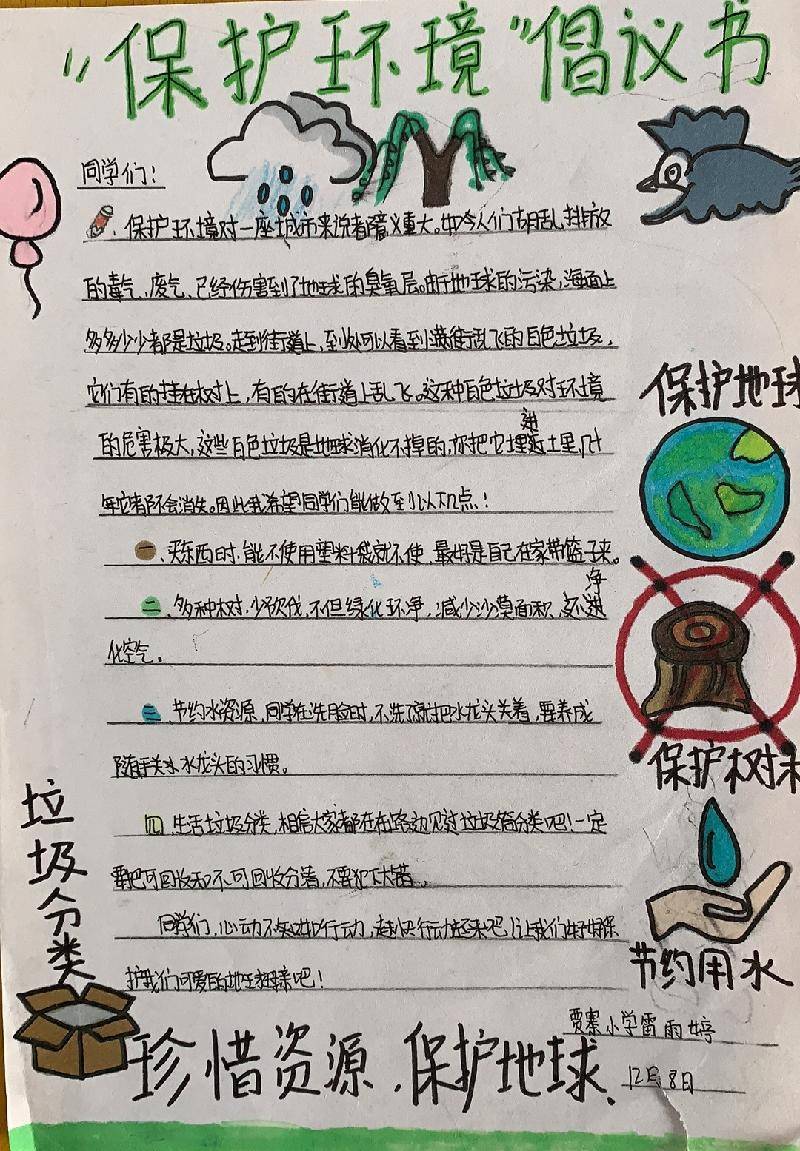 “保护环境”倡议书
同学们：
保护环境对一座城市来说者都意义重大。如今人们胡乱排放
的毒气、废气、已经伤害到了地球的臭氧层。由于地球的污染，海面上
多多少少都是垃圾。走到街道上，到处可以看到满街乱飞的白色垃圾，
它们有的挂在树上，有的在街道上乱飞。这种白色垃圾对环境
的危害极大，这些白色垃圾是地球消化不掉的，你把它埋进土里几十
年它都不会消失。因此我希望同学们能做到以下几点！
一、买东西时，能不使用塑料袋就不使，最好是自己在家带篮子来。
二、多种树，少砍伐，不但绿化环净，减少沙漠面积、还净
化空气。
三、节约水资源，同学在洗脸时，不洗了就把水龙头关着，要养成
随手关水水龙头的习惯。
四、生活垃圾分类，相信大家都在在路边见过垃圾箱分类吧！一定
要把可回收和不可回收分着，不要犯下大错。
同学们，心动不如行动，赶快行动起来吧！让我们好好保
护我们可爱的地球母亲吧！
贾寨小学雷雨婷
12月8日
珍惜资源，保护地球、
保护地球
保护树木
节约用水
垃圾分类